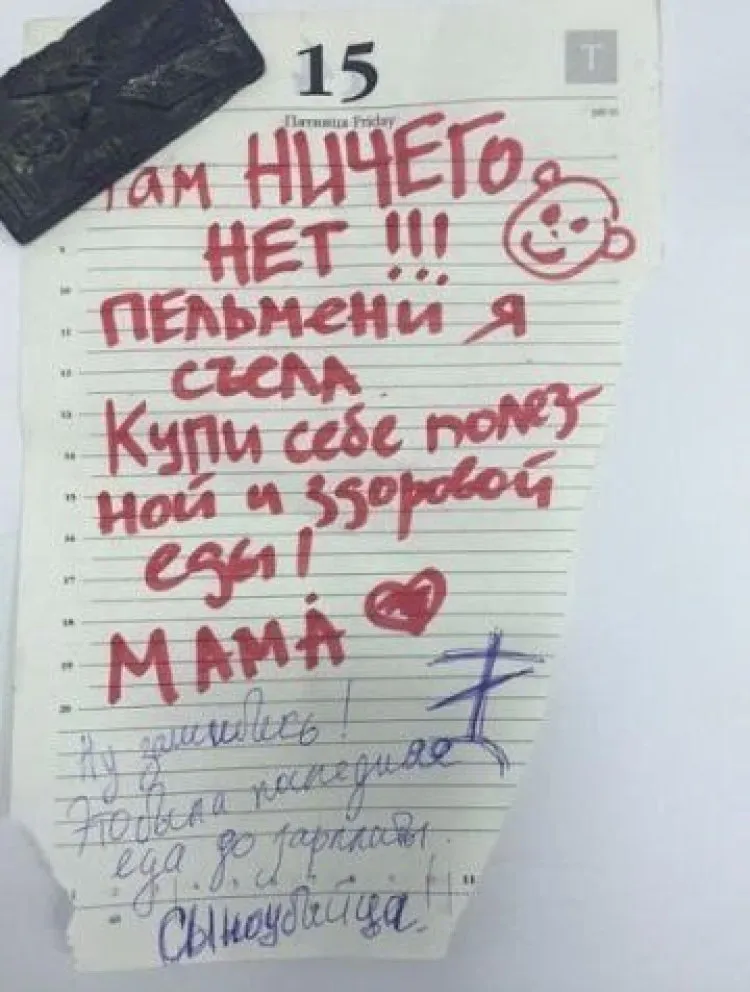 15
T
Пятница Friday
Там НИЧЕГО
НЕТ !!!
ПЕЛЬМЕНИ Я
СЪЕЛА
Купи себе полез-
ной и здоровой
еды!
МАМА
9
10
11
12
13
14
15
16
17
18
19
20
Ну зашибись!
Это была последняя
еда до зарплаты.
11
Сыноубийца!